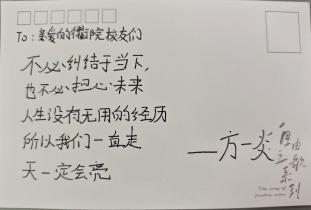 To：亲爱的衢院校友们
不必纠结于当下，
也不必担心未来
人生没有无用的经历
所以我们一直走
天一定会亮
——方一炎
自由之歌系列